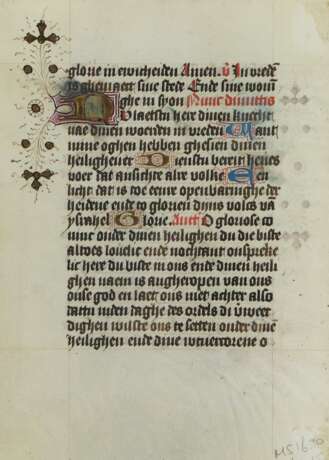 glorie in ewicheiden Amen. v̄ In vrede
is ghemaect sine stede Ende sine woni
ghe in syon Nunc dimittis
Nv laetstu here dinen knecht
nae dinen woerden in vreden Want
mine oghen hebben ghesien dinen
heilighenter Dienstu bereit heves
voer dat ansichte alre volke Een
licht dat is toe eenre openbaringhe der
heidene ende to glorien dijns volcs vā
ysrahel Glorie. Ant O gloriose to
unt onder dinen heilighen du die biste
altoes lovelic ende nochtant onspreke
lic here du biste in ons ende dinen heili
ghen naem is angheropen van ons
onse god en laet ons niet achter also
dattu inden daghe des ordels di vweer
dighen wilste ons te setten onder dinē
heilighen ende dine wtvercorene o
MS 16